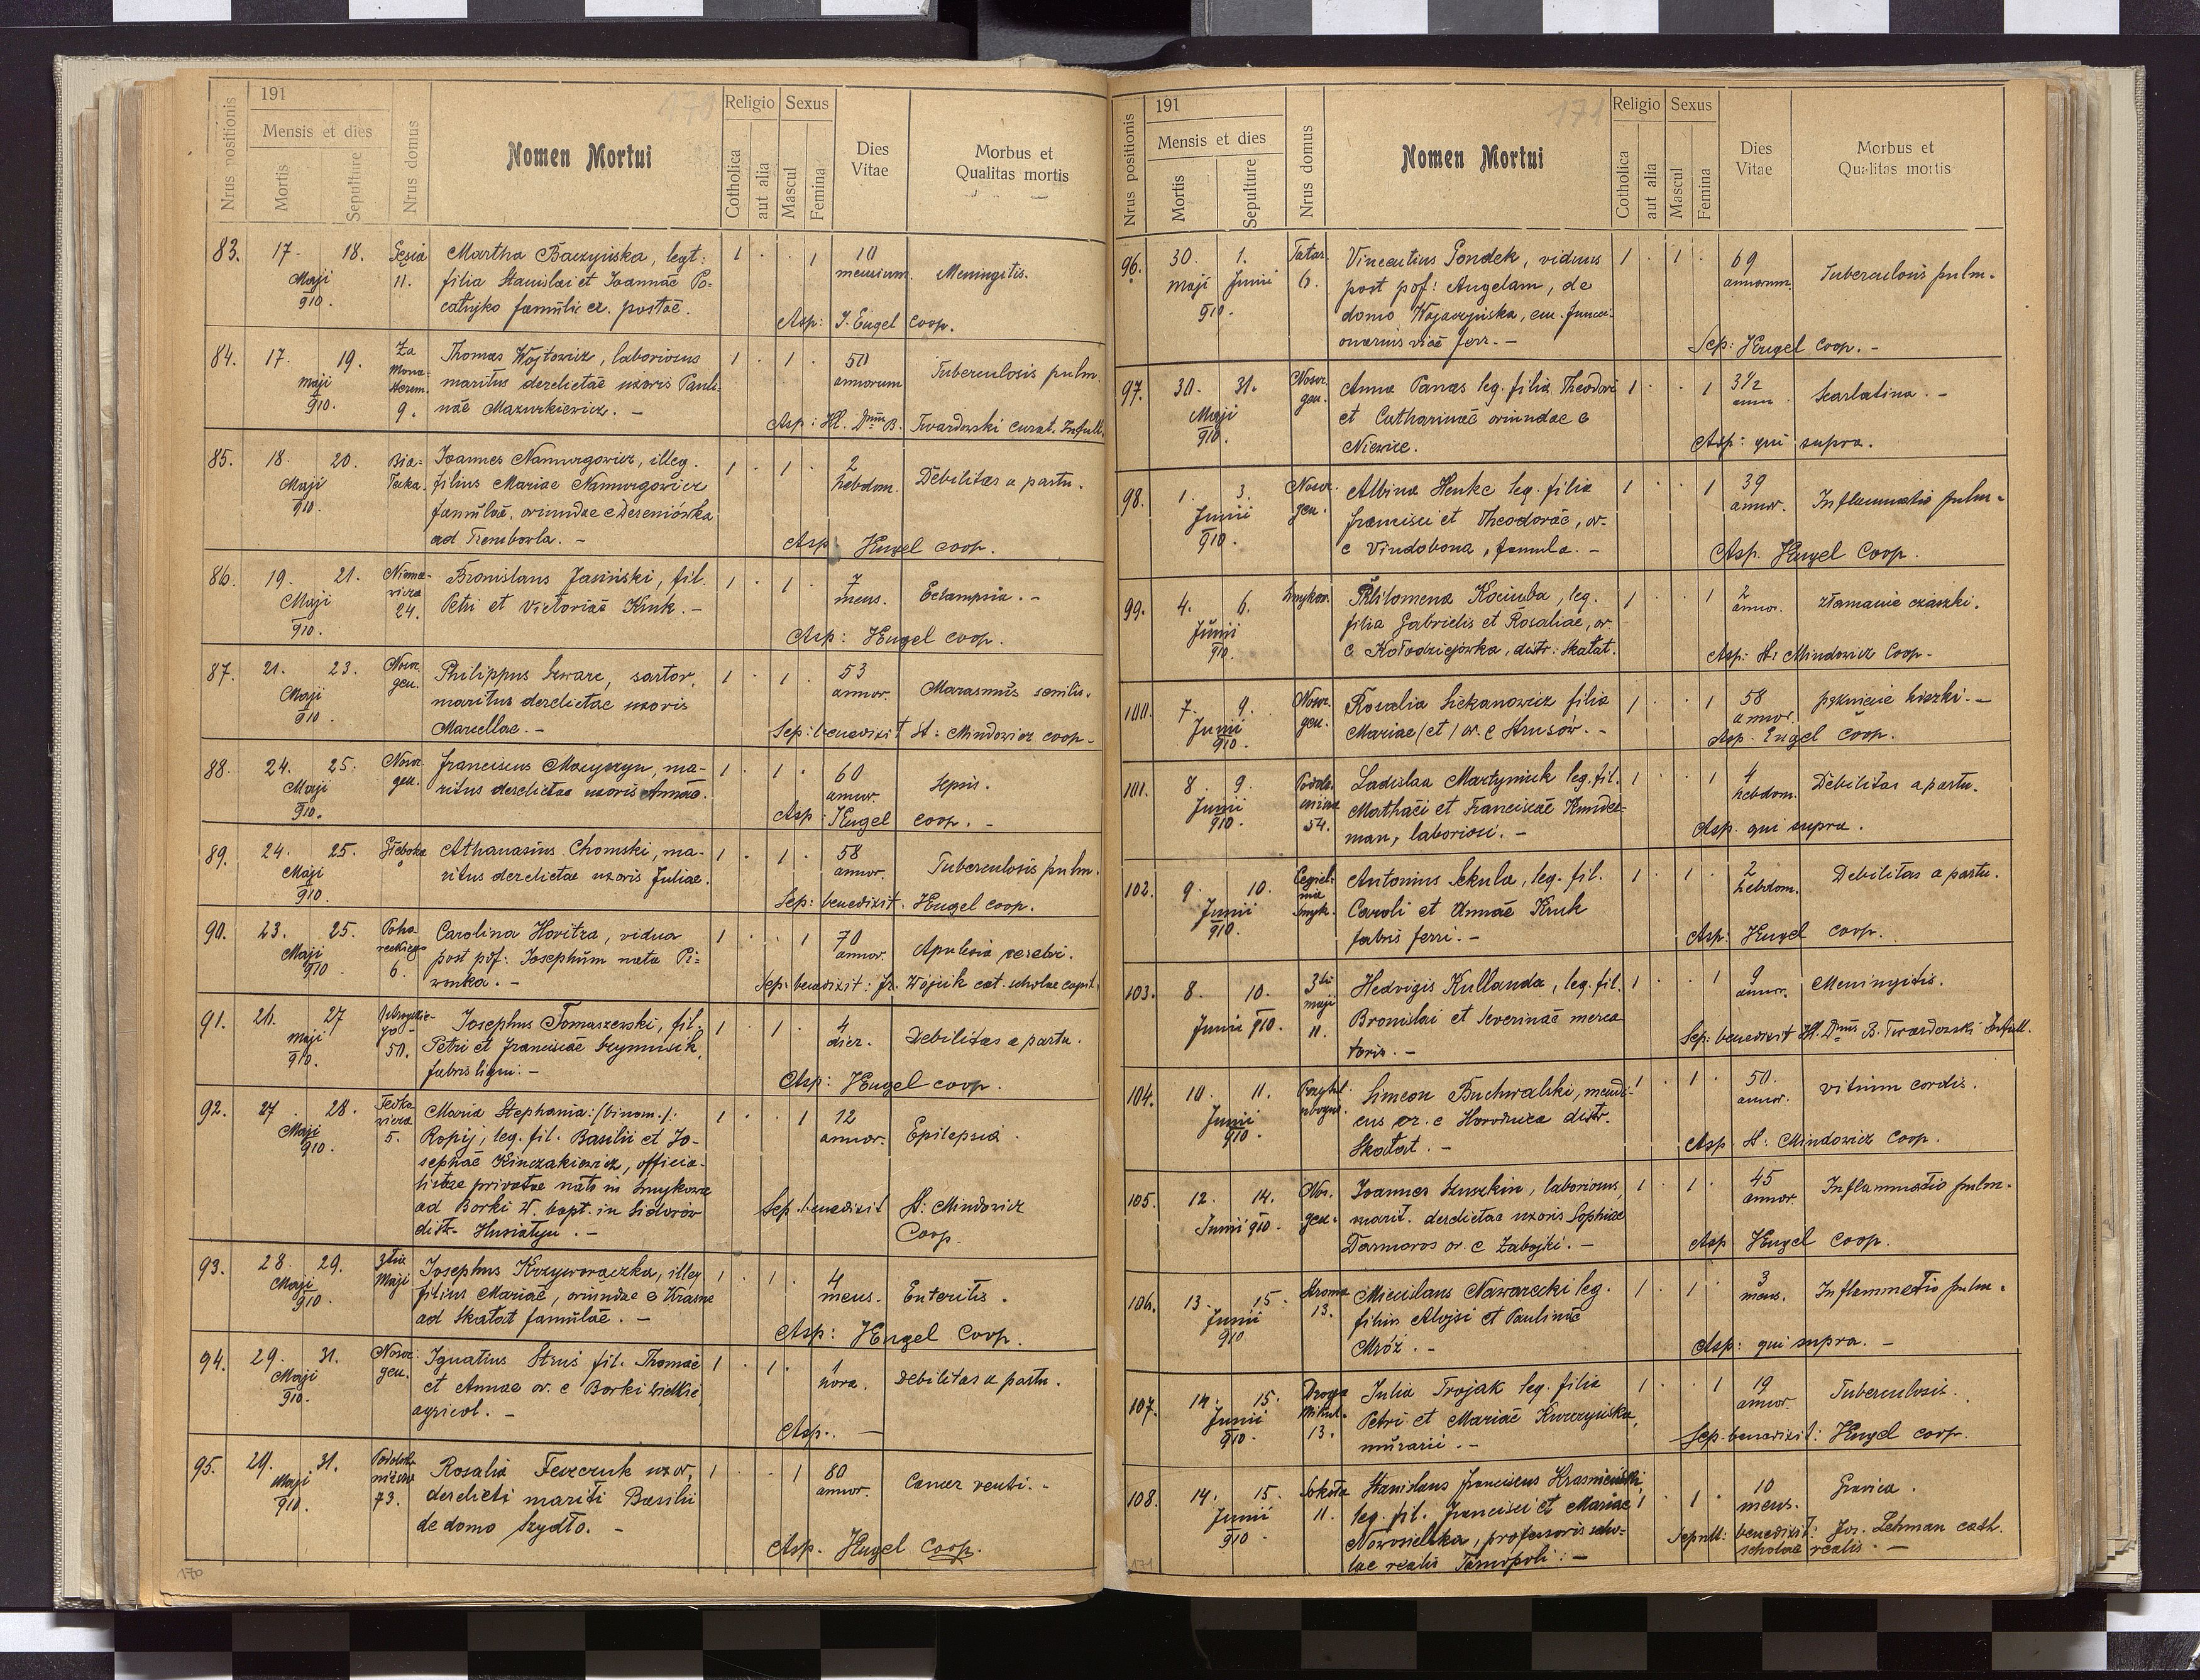 191
Mensis et dies
Nrus positionis
Mortis
Sepulture
Nrus domus
Nomen Mortui
Religio
Sexus
Catholica
aut alia
Mascul
Femina
Dies
Vitae
Morbus et
Qualitas mortis
83. 17. 18. Gęsia Martha Baczyńska, legt: 1 . . 1 10
Maji 11. filia Stanislai et Joannae Po= mensium. Meningitis.
910. famuli ex. postae.
Asp: J. Engel coop.
84. 17. 19. Za Thomas Wojtowicz, laboriosus 1 . 1 . 50
maji maritus derelictae uxoris Pauli- annorum Tuberculosis pulm.
910. 9. nae Mazurkiewicz. -
Asp: Twardowski curat. Infull.
85. 18. 20. Joannes Namurgowicz, illeg. 1 . 1 . 2
Maji filius Mariae Namurgowicz hebdom. Debilitas a partu.
910. famulae, oriundae
ad Trembowla. -
Asp Engel coop.
86. 19. 21. Bronislaus Jasiński, fil. 1 . 1 . 7
Maji Petri et Victoriae Kruk. - mens. Eclampsia. -
910. 24.
Asp: Engel coop.
87. 21. 23. Nowr. Philippus Szwarc, sartor, 1 . 1 . 53
Maji gen. maritus derelictae uxoris annor. Marasmus senilis.
910. Marcellae. -
Sep: benedixit St. Mindowicz coop.
88. 24. 25. Nowr. Franciscus ma- 1 . 1 . 60
Maji gen. ritus derelictae uxoris Annae. annor. Sepsis.
910.
Asp Engel coop. -
89. 24. 25. Athanasius Chomski, ma- 1 . 1 . 58
Maji ritus derelictae uxoris Juliae. annor. Tuberculosis pulm.
910.
Sep: benedixit. Engel coop.
90. 23. 25. Carolina Hovitza, vidua 1 . . 1 70
Maji post pof: Josephum nata Pi= annor. cerebri.
910 6. wonka. -
Sep: benedixit: Wójcik cat. scholae
91. 26. 27 Josephus Tomaszewski, fil. 1 . 1 . 4
maji Petri et Franciscae Szymusik, dier. Debilitas a partu.
910. 50. fabri ligni. -
Asp: Engel coop.
92. 27. 28. Maria Stephania: (binom.). 1 . . 1 12
Maji 5. Ropij, leg. fil. Basilii et Jo- annor. Epilepsia.
910. sephae Kinczakiewicz, officia-
listae privatae nata in Smykowce
ad Borki W. bapt. in Sidorów
distr. Husiatyn. -
Sep. benedixit St: Mindowicz
Coop.
93. 28. 29. 3tia Josephus Krzyworączka, illeg 1 . 1 . 4
Maji Maji filius Mariae, oriundae e Krasne mens. Enteritis.
910. ad Skałat famulae. -
Asp: Engel Coop.
94. 29. 31. Nowr. Ignatius Struś fil. Thomae 1 . 1 . 1
Maji gen. et Annae or. e Borki wielkie, hora. Debilitas a partu.
910. agricol. -
Asp. -
95. 29. 31. Rosalia Feszczuk uxor, 1 . . 1 80
Maji derelicti mariti Basilii annor. Cancer ventri. -
910. 73. de domo Szydło. -
Asp. Engel Coop.
170
191
171
Mensis et dies
Nrus positionis
Mortis
Sepulture
Nrus domus
Nomen Mortui
Religio
Sexus
Catholica
aut alia
Mascul
Femina
Dies
Vitae
Morbus et
Qualitas mortis
96. 30. 1. Tatar. Vincentius Gondek, viduus 1 . 1 . 69
maji Junii 6. post pof: Angelam, de annorum. Tuberculosis pulm.
910. domo em. functi-
onarius viae ferr. -
Sep: Engel coop. -
97. 30. 31. Nowr. Anna Panas leg. filia Theodori 1 . . 1 3 1/2
Maji gen. et Catharinae oriundae e annor. Scarlatina. -
910. Niewice.
Asp: qui supra.
98. 1. 3. Nowr. Albina Henke leg. filia 1 . . 1 39
Junii gen. Francisci et Theodorae, or. annor. Inflammatio pulm.
910. e Vindobona, famula. -
Asp. Engel Coop.
99. 4. 6. Smykow. Philomena Kociuba, leg. 1 . . 1 2
Junii filia Gabrielis et Rosaliae, or annor. złamanie czaszki.
910. e Kołodziejówka, distr: Skałat.
Asp: St. Mindowicz Coop.
100. 7. 9. Nowr. Rosalia Siekanowicz filia 1 . . 1 58 pęknięcie kiszki. -
Junii gen. Mariae (et) or. e Strusów. - annor.
910.
Asp. Engel coop.
101. 8. 9. Ladislaa Martyniuk leg. fil. 1 . . 1 4
Junii Mathaei et Franciscae hebdom. Debilitas a partu.
910. 54. man, laboriosi. -
Asp. qui supra.
102. 9. 10. Cegiel- Antonius Sekula, leg. fil. 1 . 1 . 2
Junii nia Caroli et Annae Kruk hebdom. Debilitas a partu.
910. Smyk. fabri ferri. -
Asp: Engel coop.
103. 8. 10. 3tii Hedvigis Kullanda, leg. fil. 1 . . 1 9
Junii 910. maji Bronislai et Severinae merca annor. Meningitis.
11. toris. -
Sep: benedixit Hl. Dnus B. Twardowski Infull.
104. 10. 11. Simeon Buchwalski, mendi- 1 . 1 . 50.
Junii cus or. e Horodnica distr. annor. vitium cordis.
910. Skałat. -
Asp St: Mindowicz Coop.
105. 12. 14. Nor. Joannes Szuszkin, laboriosus, 1 . 1 . 45
Junii 910. gen. marit. derelictae uxoris Sophiae annor. Inflammatio pulm.
Darmoros or. e Zabojki. -
Asp Engel Coop.
106. 13. 15. 13. Miecislaus Nawarecki leg. 1 . 1 . 3
Junii filius Alojsi et Paulinae mens. Inflammatio pulm.
910 Mróz. -
Asp: qui supra. -
107. 14. 15. Droga Julia Trojak leg. filia 1 . . 1 19
Junii Mikul. Petri et Mariae Kurczyńska, annor. Tuberculosis.
910. 13. murarii. -
Sep. benedixit: Engel coop.
108. 14. 15. Sokoła Stanislaus Franciscus 1 . 1 . 10
Junii 11. leg. fil. Francisci et Mariae mens.
910. Nowosielska, professoris scho-
lae realis Tarnopoli. -
Sepult: benedixit: Jos. Lehman cath.
scholae realis. -
171